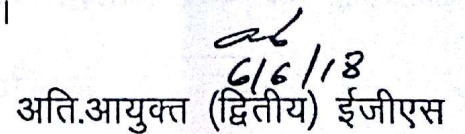 ।
6/6/18
अति.आयुक्त (द्वितीय) ईजीएस